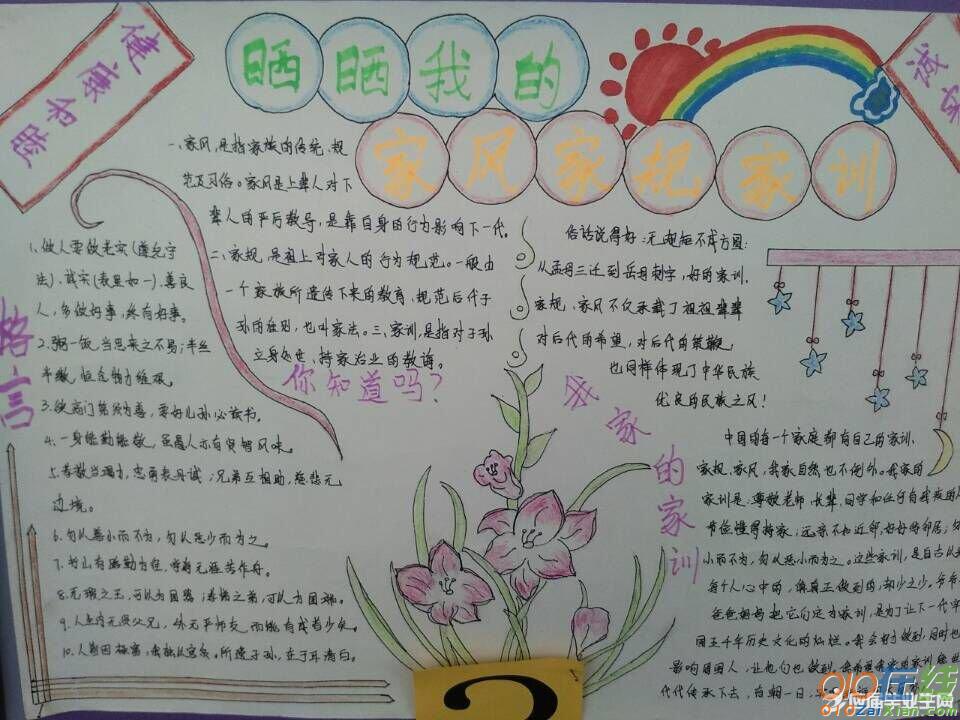 健康和睦
晒晒我的
家风家规家训
诚实
一、家风,是指家族的传统、规
范及习俗。家风是上辈人对下
辈人的严厉教导,是靠自身的行为影响下一代。
二、家规,是祖上对家人的行为规范。一般由
一个家族所遗传下来的教育、规范后代子
孙的准则,也叫家法。三、家训,是指对子孙
立身处世、持家治业的教诲。
你知道吗?
格言
1、做人要做老实(遵纪守
法)、诚实(表里如一)、善良
人,多做好事,终有好事。
2、粥一饭,当思来之不易;半丝
半缕,恒念物力维艰。
3、欲高门第须为善,要好儿孙必读书。
4、一身能勤能敬,虽愚人亦有贤智风味。
5、孝敬当竭力,忠勇表丹诚;兄弟互相助,慈悲无
边境。
6、勿以善小而不为,勿以恶少而为之。
7、书山有路勤为径,学海无涯苦作舟。
8、无瑕之玉,可以为国器;孝悌之弟,可以为国瑞。
9、人生内无贤父兄,外无严师友,而能有成者少矣。
10、
所遗子孙,在于清白。
俗话说得好:无规矩不成方圆:
从孟母三迁到岳母刺字,好的家训、
家规、家风不仅承载了祖祖辈辈
对后代的希望,对后代的鞭策,
也同样体现了中华民族
优良的民族之风!
我家的家训
中国的每一个家庭都有自己的家训、
家规、家风,我家自然也不例外。我家的
家训是:尊敬老师、长辈、同学和任何
节俭懂得持家;远亲不如近邻,好好待邻居;勿
小而不为,勿以恶小而为之。这些家训,是自古以
每个人心中的,但真正做到的,却少之少。爷爷
爸爸妈妈把它们定为家训,是为了让下一代
国五千年历史文化的灿烂。我会努力做到,同时也
影响周围人,让他们也做到。
代代传承下去,有朝一日,
2
910在线
910zaixian.com
应届毕业生网